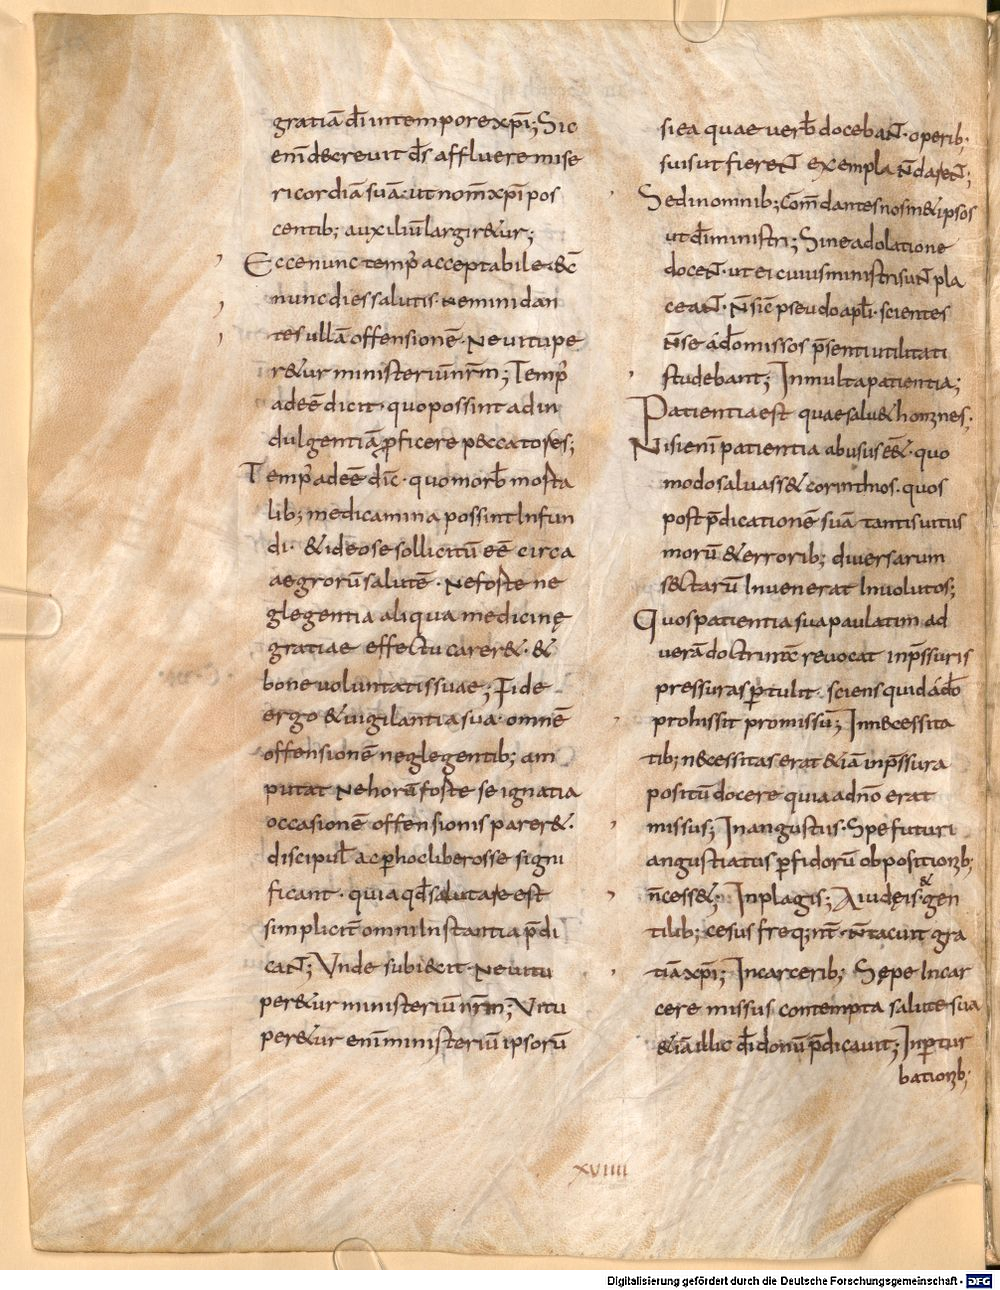 gratiā dī in tempore xp̄i; Sic
enī decrevit d̄s affluere mise
ricordiā suā. ut nom̄ xp̄i pos
centib; auxiliū largiretur;
Ecce nunc temp' acceptabile. ecc̄
nunc dies salutis. Nemini dan
tes ullā offensionē. Ne vitupe
r&ur ministeriū nrm̄; Temp'
adeē dicit. quo possint ad in
dulgentiā p̄ficere peccatores;
Temp' adeē dic̄. quo morb̄ morta
lib; medicamina possint Infun
di. & ideo se sollicitū eē circa
aegrorū salutē. Ne forte ne
glegentia aliqua medicinę
gratiae effectu carer&. &
bone voluntatis suae; Fide
ergo & vigilantia sua. omnē
offensionē neglegentib; am
putat Ne horū forte se ignatia
occasionē offensionis parer&.
discipul̄ ac p hoc liberos se signi
ficant. quia qd̄ salutare est
simplicit̄ omni Instantia p̄di
cant; Unde subiecit. Ne vitu
per&ur ministeriū nrm̄; Vitu
per&ur enī ministeriū ipsorū
si ea quae verb̄ docebant. operib;
suis ut fierent exempla n̄ darent;
Sed in omnib; com̄dantes nosm&ipsos
ut dī ministri; Sine adolatione
docent. ut ei cuius ministri sunt pla
ceant. n̄ sic̄ pseudo apl̄i. scientes
n̄ se a dō missos p̄senti utilitati
studebant; In multa patientia;
Patientia est quae salv& homines;
Nisi enī patientia abusus eēt. quo
modo salvass& corinthios. quos
post p̄dicationē suā tantis vitus
morū & errorib; diversarum
s&tarū Invenerat Involutos;
Quos patientia sua paulatim ad
verā doctrinā revocat In p̄ssuris
pressuras ptulit. sciens quid a dō
prohissit promissū; In necessita
tib; necessitas erat &iā in p̄ssura
positū docere quia ad n̄o erat
missus; In angustiis. Spe futuri
angustiatus p fidorū obpositionib;
n̄ cess&; In plagis; A iudęis. & gen
tilib; cesus freq;nt̄. n̄ tacuit gra
tiā xp̄i; In carcerib; Sępe In car
cere missus contempta salute sua
&iā illic dī donū p̄dicavit; In ptur
bationib;
XVIIII
Digitalisierung gefördert durch die Deutsche Forschungsgemeinschaft - DFG